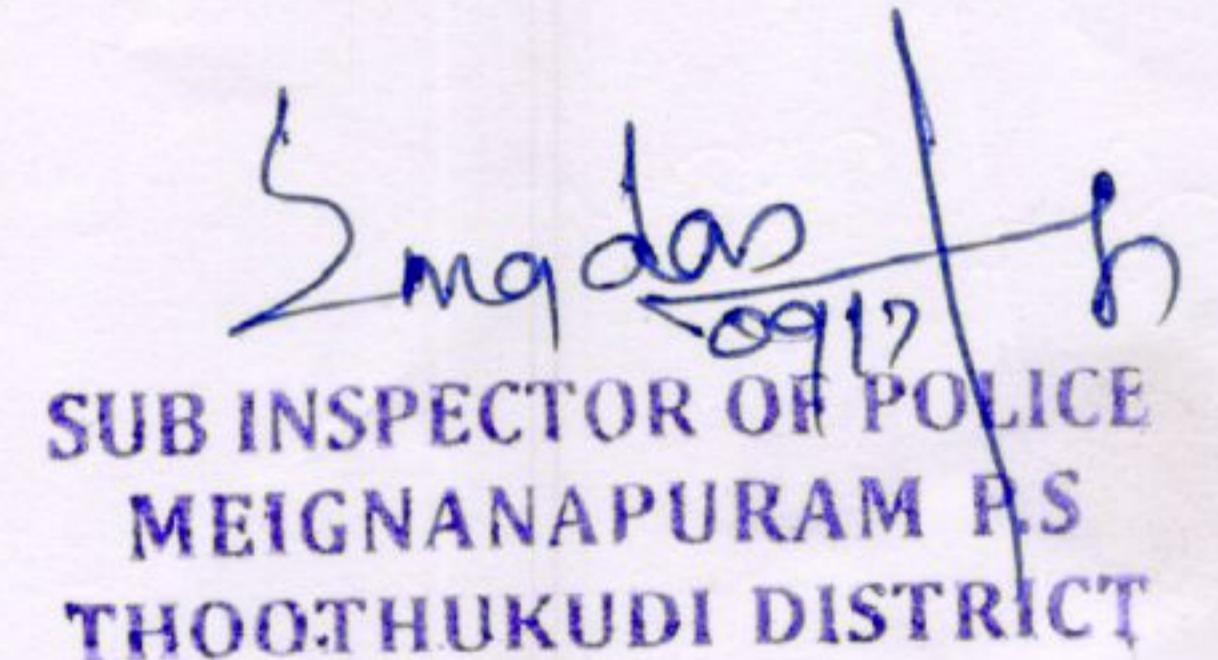 SUB INSPECTOR OF POLICE
MEIGNANAPURAM P.S
THOOTHUKUDI DISTRICT